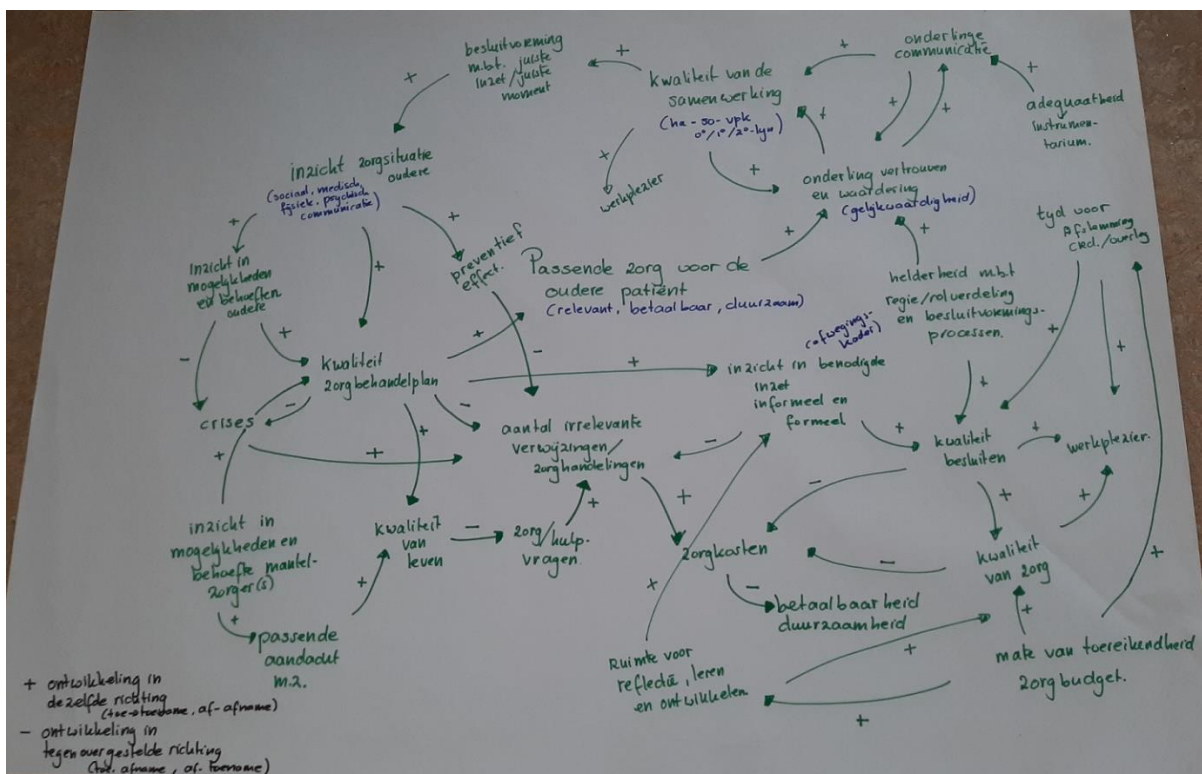 besluitvorming
m.b.t. juiste
inzet/juiste
moment
+
+
kwaliteit van de
samenwerking
(ha-so-vpk
0°/1°/2°-lyn)
+
onderlinge
communicatie
+
+
+
adequaatheid
instrumen-
tarium.
inzicht zorgsituatie
oudere
(sociaal, medisch,
fysiek, psychisch,
communicatie)
+
werkplezier
+
+
onderling vertrouwen
en waardering
(gelijkwaardigheid)
+
+
+
+
preventief
effect.
inzicht in
mogelijkheden
en behoeften
oudere
Passende zorg voor de
oudere patiënt
(relevant, betaalbaar, duurzaam)
+
+
helderheid m.b.t
regie/rolverdeling
en besluitvormings-
processen.
tyd voor
afstemming
/overleg
-
+
kwaliteit
zorgbehandelplan
+
-
+
(afwegings-
kader)
inzicht in benodigde
inzet
informeel en
formeel
+
+
+
crises
-
-
+
+
+
aantal irrelevante
verwijzingen/
zorghandelingen
-
+
kwaliteit
besluiten
+
werkplezier.
inzicht in
mogelijkheden en
behoefte mantel-
zorger(s)
kwaliteit
van
leven
-
zorg/hulp-
vragen.
+
+
zorgkosten
-
+
+
-
kwaliteit
van zorg
+
+
passende
aandacht
m.z.
+
-
betaalbaarheid
duurzaamheid
+
Ruimte voor
reflectie, leren
en ontwikkelen
+
+
+
mate van toereikendheid
zorgbudget.
+ ontwikkeling in
dezelfde richting
(toe-toename, af-afname)
- ontwikkeling in
tegenovergestelde richting
(toe. afname, af. toename)